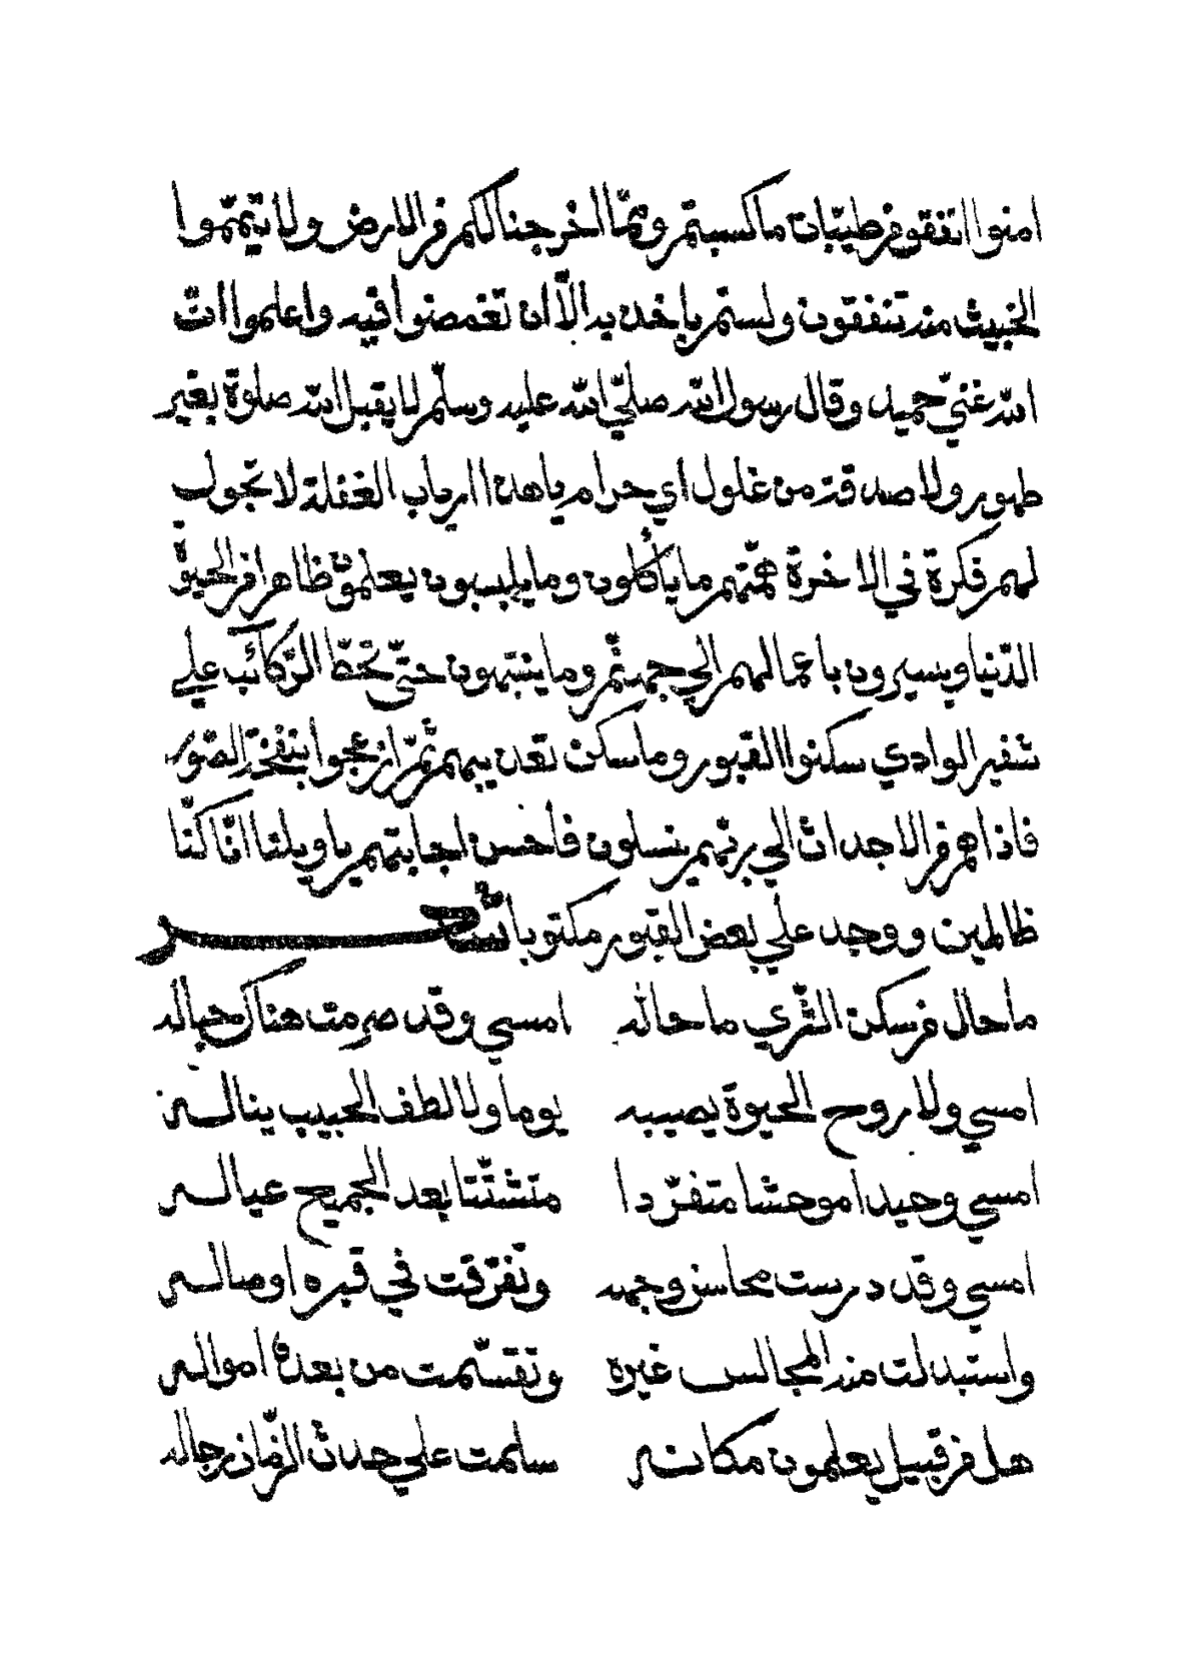 امنوا انفقو من طيبات ما كسبتم وممّا اخرجنا لكم من الارض ولا تيمّموا
الخبيث منه تنفقون ولستم باخذيه الّا ان تغمضوا فيه واعلموا انّ
الله غنيّ حميد وقال رسول الله صليّ الله عليه وسلّم لا يقبل الله صلوة بغير
طهور ولا صدقة من غلول اي حرام يا هذا ارباب الغفلة لا تجول
لهم فكرة في الاخرة همّتهم ما يأكلون وما يلبسون يعلمون ظاهرا من الحيوة
الدّنيا ويسيرون باعمالهم الي جهنّم وما ينتبهون حتّي تحطّ الرّكائب علي
شفير الوادي سكنوا القبور وما سكن تعذيبهم ثمّ ازعجوا بنفخة الصّور
فاذاهم من الاجداث الي ربّهم ينسلون فاحسن اجابتهم يا ويلنا انّا كنّا
ظالمين ووجد علي بعض القبور مكتوبا شعر
ما حال من سكن الثّري ما حاله امسي وقد صرمت هناك حباله
امسي ولا روح الحيوة يصيبه يوما ولا لطف الحبيب يناله
امسي وحيدا موحشا متفرّدا متشتّتا بعد الجميع عياله
امسي وقد درست محاسن وجهه وتفرّقت في قبره اوصاله
واستبدلت منه المجالس غيره وتقسّمت من بعده امواله
هل من قبيل يعلمون مكانه سلمت علي حدث الزّمان رجاله